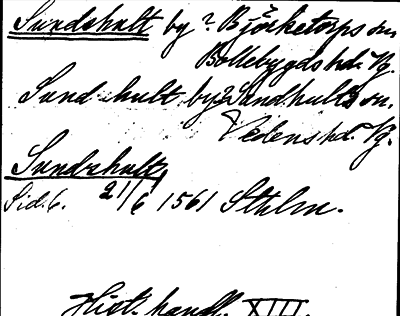 Sundshult by ? Björketorps sn
Bollebygds hd. Vg.
Sundshult by? Sandhults sn.
Vedens hd. Vg.
Sundzhultt
Sid. 6. 21/6 1561 Sthlm.
Hist. handl. XIII.